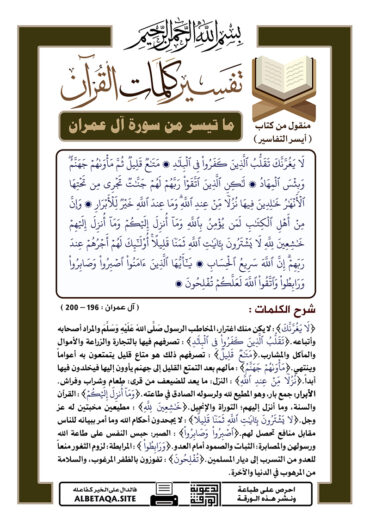 بسم الله الرحمن الرحيم
تفسير كلمات القرآن
ما تيسر من سورة آل عمران
منقول من كتاب
( أيسر التفاسير )
لَا يَغُرَّنَّكَ تَقَلُّبُ ٱلَّذِينَ كَفَرُواْ فِي ٱلۡبِلَٰدِ ۞ مَتَٰعٞ قَلِيلٞ ثُمَّ مَأۡوَىٰهُمۡ جَهَنَّمُۖ
وَبِئۡسَ ٱلۡمِهَادُ ۞ لَٰكِنِ ٱلَّذِينَ ٱتَّقَوۡاْ رَبَّهُمۡ لَهُمۡ جَنَّٰتٞ تَجۡرِي مِن تَحۡتِهَا
ٱلۡأَنۡهَٰرُ خَٰلِدِينَ فِيهَا نُزُلٗا مِّنۡ عِندِ ٱللَّهِۗ وَمَا عِندَ ٱللَّهِ خَيۡرٞ لِّلۡأَبۡرَارِ ۞ وَإِنَّ
مِنۡ أَهۡلِ ٱلۡكِتَٰبِ لَمَن يُؤۡمِنُ بِٱللَّهِ وَمَآ أُنزِلَ إِلَيۡكُمۡ وَمَآ أُنزِلَ إِلَيۡهِمۡ
خَٰشِعِينَ لِلَّهِ لَا يَشۡتَرُونَ بِـَٔايَٰتِ ٱللَّهِ ثَمَنٗا قَلِيلًاۚ أُوْلَٰٓئِكَ لَهُمۡ أَجۡرُهُمۡ عِندَ
رَبِّهِمۡۗ إِنَّ ٱللَّهَ سَرِيعُ ٱلۡحِسَابِ ۞ يَٰٓأَيُّهَا ٱلَّذِينَ ءَامَنُواْ ٱصۡبِرُواْ وَصَابِرُواْ
وَرَابِطُواْ وَٱتَّقُواْ ٱللَّهَ لَعَلَّكُمۡ تُفۡلِحُونَ ۞
( آل عمران : 196 – 200 )
شرح الكلمات :
﴿لَا يَغُرَّنَّكَ﴾ : لا يكن منك اغترار، المخاطب الرسول صَلَّى اللهُ عَلَيْهِ وَسَلَّمَ والمراد أصحابه
وأتباعه. ﴿تَقَلُّبُ ٱلَّذِينَ كَفَرُواْ فِي ٱلۡبِلَٰدِ﴾ : تصرفهم فيها بالتجارة والزراعة والأموال
والمآكل والمشارب. ﴿مَتَٰعٞ قَلِيلٞ﴾ : تصرفهم ذلك هو متاع قليل يتمتعون به أعواماً
وينتهي. ﴿مَأۡوَىٰهُمۡ جَهَنَّمُ﴾ : مآلهم بعد التمتع القليل إلى جهنم يأوون إليها فيخلدون فيها
أبدا. ﴿نُزُلٗا مِّنۡ عِندِ ٱللَّهِ﴾ : النزل: ما يعد للضيف من قرى: طعام وشراب وفراش.
الأبرار: جمع بار، وهو المطيع لله ولرسوله الصادق في طاعته. ﴿وَمَآ أُنزِلَ إِلَيۡكُمۡ﴾ : القرآن
والسنة، وما أنزل إليهم: التوراة والإنجيل. ﴿خَٰشِعِينَ لِلَّهِ﴾ : مطيعين مخبتين له عز
وجل. ﴿لَا يَشۡتَرُونَ بِـَٔايَٰتِ ٱللَّهِ ثَمَنٗا قَلِيلًا﴾ : لا يجحدون أحكام الله وما أمر ببيانه للناس
مقابل منافع تحصل لهم. ﴿ٱصۡبِرُواْ وَصَابِرُواْ﴾ : الصبر: حبس النفس على طاعة الله
ورسولهن والمصابرة: الثبات والصمود أمام العدو. ﴿وَرَابِطُواْ﴾ : المرابطة: لزوم الثغور منعاً
للعدو من التسرب إلى ديار المسلمين. ﴿تُفۡلِحُونَ﴾ : تفوزون بالظفر المرغوب، والسلامة
من المرهوب في الدنيا والآخرة.
احرص على طباعة
ونشر هذه الورقة
فالدال على الخير كفاعله
ALBETAQA.SITE